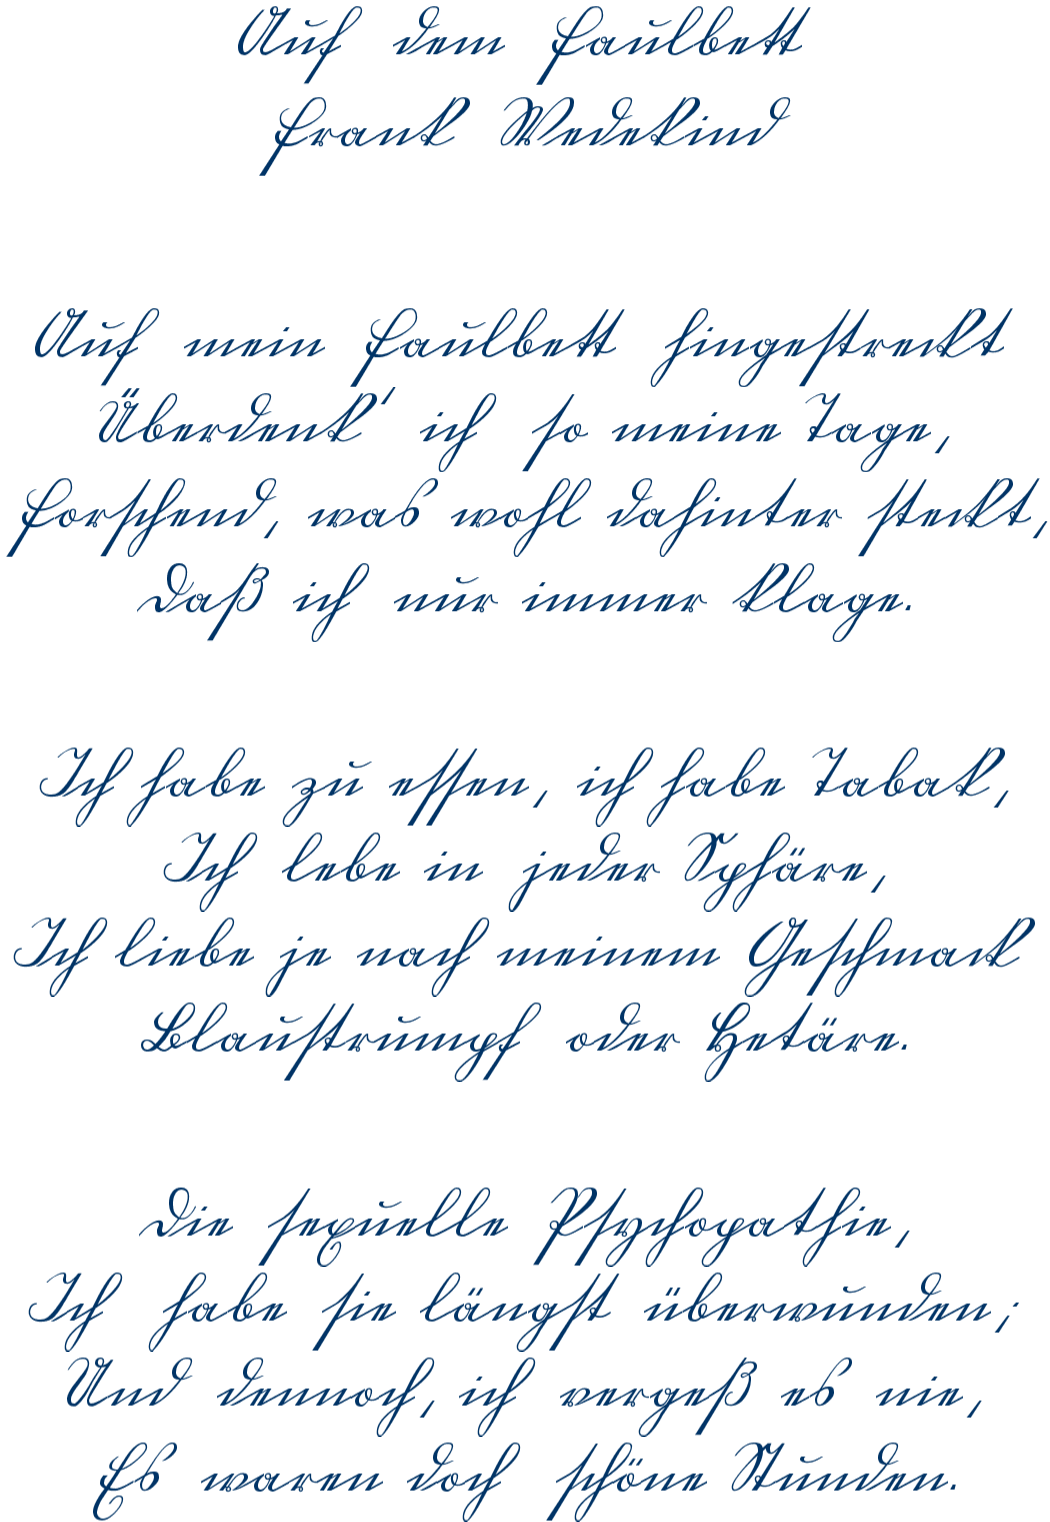 Auf dem Faulbett
Frank Wedekind
Auf mein Faulbett hingestreckt
Überdenk' ich so meine Tage,
Forschend, was wohl dahinter steckt,
Daß ich nur immer klage.
Ich habe zu essen, ich habe Tabak,
Ich lebe in jeder Sphäre,
Ich liebe je nach meinem Geschmack
Blaustrumpf oder Hetäre.
Die sexuelle Psychopathie,
Ich habe sie längst überwunden;
Und dennoch, ich vergeß es nie,
Es waren doch schöne Stunden.